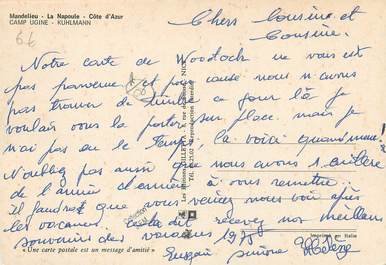 Mandelieu - La Napoule - Côte d'Azur
CAMP UGINE - KUHLMANN
Chers Cousine et
Cousine.
Notre carte de Woodock ne vous est
pas parvenue et pas cause nous n'avons
pas trouver de timbre ce jour là je
voulais vous la porter sur place, mais je
n'ai pas eu le temps, la voici quand même!
N'oubliez pas aussi que nous avons 1 cuillère
de l'année dernière à vous remettre.
Il faudrait que vous veniez nous voir après
les vacances. cela dit recevez nos meilleurs
souvenirs des vacances 1975
Simone
Imprimé en Italie
« Une carte postale est un message d'amitié »